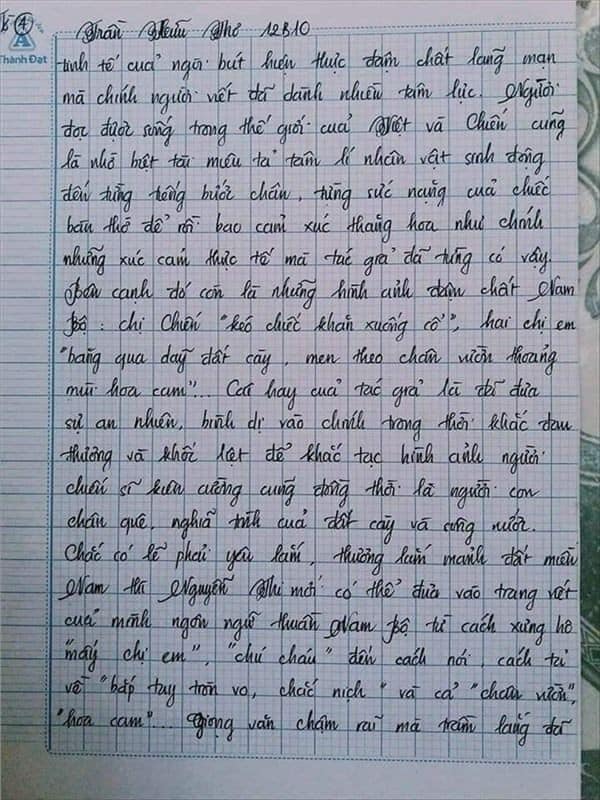 4
Thành Đạt
Trần Hữu Nhơ 12B10
tinh tế của ngòi bút hiện thực đậm chất lãng mạn
mà chính người viết đã dành nhiều tâm lực. Người
đọc được sống trong thế giới của Việt và Chiến cũng
là nhờ biệt tài miêu tả tâm lí nhân vật sinh động
đến từng tiếng bước chân, từng sức nặng của chiếc
bàn thờ để rồi bao cảm xúc thăng hoa như chính
những xúc cảm thực tế mà tác giả đã từng có vậy.
Bên cạnh đó còn là những hình ảnh đậm chất Nam
Bộ: chị Chiến "kéo chiếc khăn xuống cổ", hai chị em
"băng qua dãy đất cày, men theo chân vườn thoảng
mùi hoa cam"... Cái hay của tác giả là đã đưa
sự an nhiên, bình dị vào chính trong thời khắc đau
thương và khốc liệt để khắc tạc hình ảnh người
chiến sĩ kiên cường cũng đồng thời là người con
chân quê, nghĩa tình của đất cày và sông nước.
Chắc có lẽ phải yêu lắm, thương lắm mảnh đất miền
Nam thì Nguyễn Thi mới có thể đưa vào trang viết
của mình ngôn ngữ thuần Nam Bộ từ cách xưng hô
"mấy chị em", "chú cháu" đến cách nói, cách tả
về "bắp tay tròn vo, chắc nịch" và cả "chân vườn",
"hoa cam"... Giọng văn chậm rãi mà trầm lắng đã